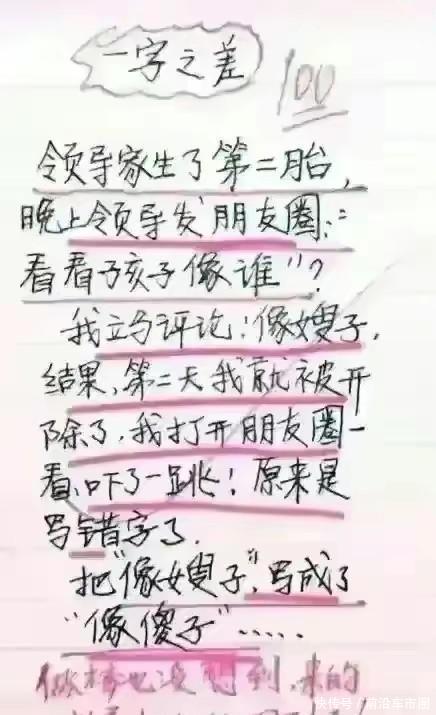 一字之差
100
领导家生了第二胎，
晚上领导发朋友圈："
看看孩子像谁"？
我立马评论：像嫂子，
结果，第二天我就被开
除了，我打开朋友圈一
看，吓了一跳！原来是
写错字了．
把"像嫂子"，写成了
"像傻子"……
做梦也没想到，来的
快传号／前沿车市图